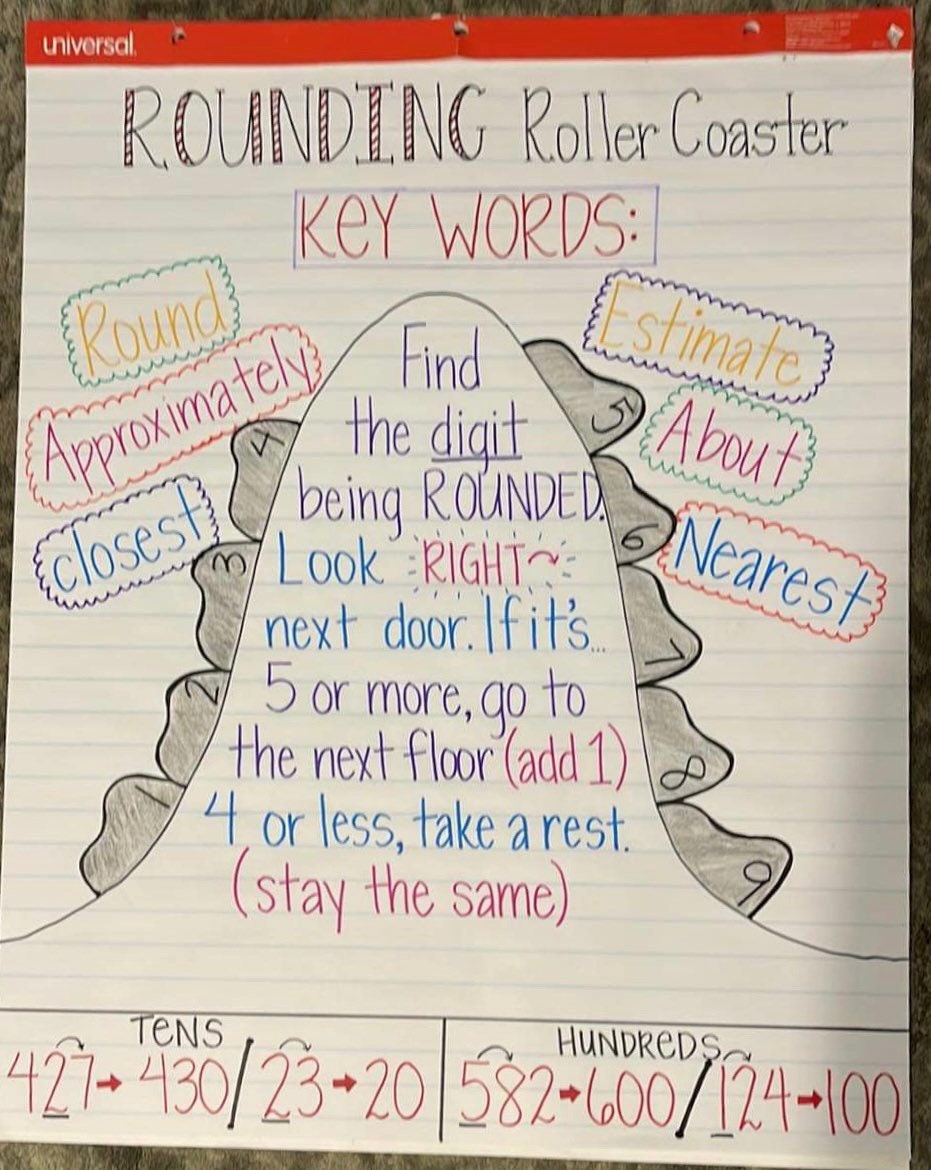 universal.
ROUNDING Roller Coaster
KEY WORDS:
Round
Approximately
closest
Estimate
About
Nearest
Find
the digit
being ROUNDED.
Look RIGHT~
next door. If it's...
5 or more, go to
the next floor (add 1)
4 or less, take a rest.
(stay the same)
4
3
2
1
5
6
7
8
9
TENS
427→430/23→20
HUNDREDS
582→600/124→100